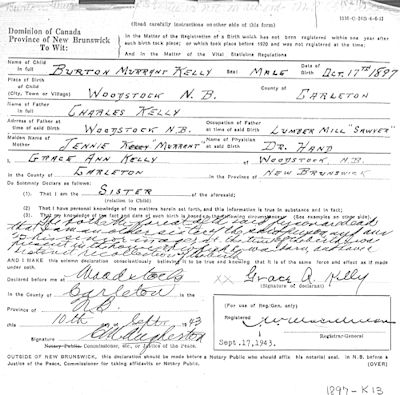 1138-C-20
(Read carefully instructions on other side of this form)
Dominion of Canada
Province of New Brunswick
To Wit:
In the Matter of the Registration of a Birth which has not been registered within one year after
such birth took place; or which took place before 1920 and was not registered at the time;
And in the Matter of the Vital Statistics Regulations
Name of Child in full BURTON MURRANT KELLY Sex MALE Date of Birth OCT. 17TH 1897
Place of Birth of Child (City, Town or Village) WOODSTOCK N.B. County of CARLETON
Name of Father in full CHARLES KELLY
Address of Father at time of said Birth WOODSTOCK N.B. Occupation of Father at time of said Birth LUMBER MILL "SAWYER"
Maiden Name of Mother JENNIE KELLY MURRANT Name of Physician at said Birth DR. HAND
I, GRACE ANN KELLY of WOODSTOCK, N.B.
in the County of CARLETON in the Province of NEW BRUNSWICK
Do Solemnly Declare as follows:
(1) That I am the SISTER of the aforesaid;
(Relation to Child)
(2) That I have personal knowledge of the matters herein set forth, and this information is true in substance and in fact;
(3) That my knowledge of the fact and date of such birth is based on the following circumstances (See examples on other side).
that I am an older sister of the
AND I MAKE this solemn declaration conscientiously believing it to be true and knowing that it is of the same force and effect as if made
under oath.
Declared before me at Woodstock XX Grace A. Kelly
(Signature of declarant)
in the County of Carleton
Province of N.B.
10th Sept 1943
Signature
Notary Public, Commissioner, etc., or Justice of the Peace.
(For use of Reg.Gen. only)
Registrar-General
Sept.17,1943.
OUTSIDE OF NEW BRUNSWICK, this declaration should be made before a Notary Public who shall affix his notarial seal. In N.B. before a
Justice of the Peace, Commissioner for taking affidavits or Notary Public. (OVER)
1897-K13